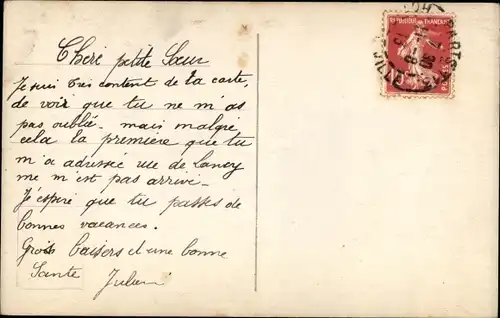 Cheri petite Sœur
Je suis très content de ta carte,
de voir que tu ne m'as
pas oublié. mais malgré
cela la première que tu
m'a adressée rue de Lancy
me m'est pas arrivé.
J'éspère que tu passes de
bonnes vacances.
Gros baisers et une bonne
Sante Julien
REPUBLIQUE FRANÇAISE
POSTES